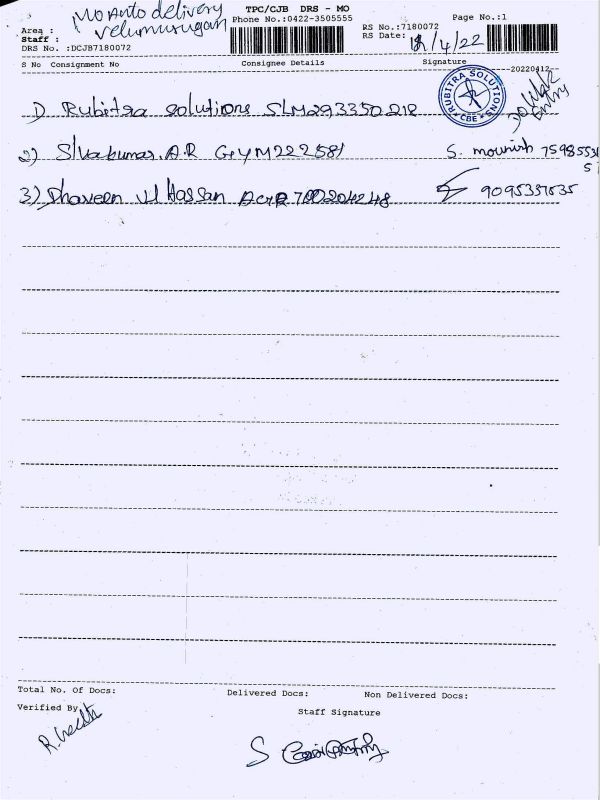 TPC/CJB DRS - MO
MO Auto delivery
Velumurugan
Phone No.:0422-3505555
Page No.:1
Area :
Staff :
DRS No. :DCJB7180072
RS No.:7180072
RS Date: 12/4/22
S No Consignment No Consignee Details Signature
20220412
1) Rubitra solutions SLM293350212
RUBITRA SOLUTIONS
CBE
Entry
2) Sivakumar.A.R GYM222581
S. mounish 75985531
5
3) Dhaveen Ul Hassan
9095337535
Total No. Of Docs: Delivered Docs: Non Delivered Docs:
Verified By
Staff Signature
S